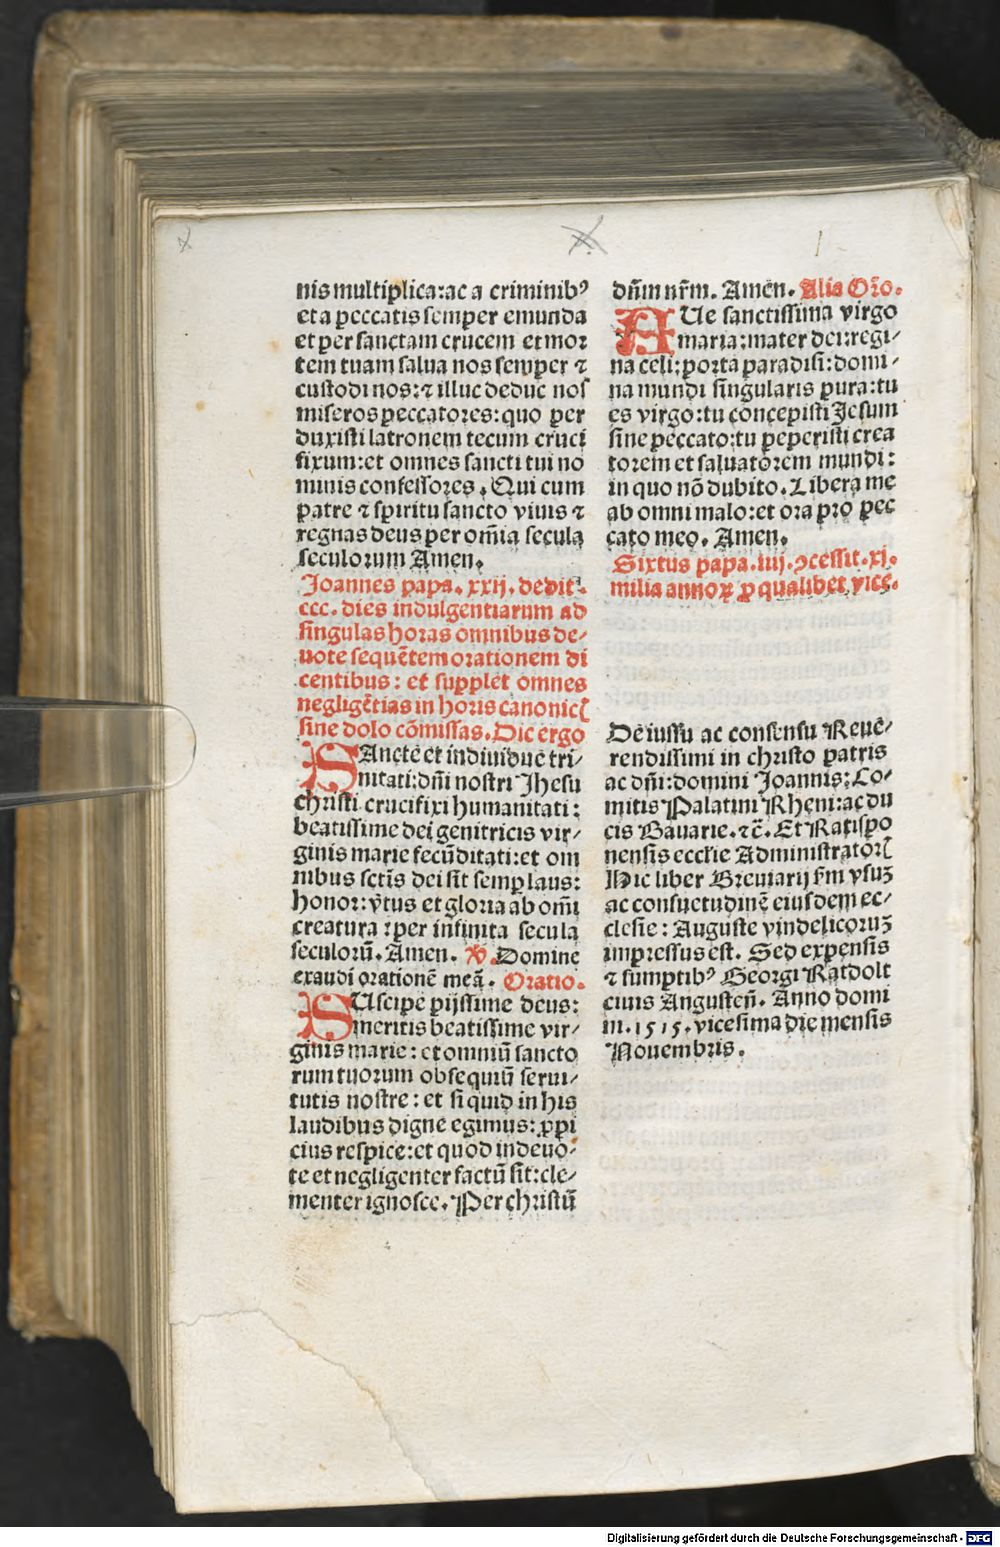 nis multiplica: ac a criminibꝰ
et a peccatis semper emunda
et per sanctam crucem et mor
tem tuam salua nos semper ⁊
custodi nos: ⁊ illuc deduc nos
miseros peccatores: quo per
duxisti latronem tecum cruci
fixum: et omnes sancti tui no
minis confessores. Qui cum
patre ⁊ spiritu sancto viuis ⁊
regnas deus per om̃ia secula
seculorum Amen.
Joannes papa. xxij. dedit
ccc. dies indulgentiarum ad
singulas horas omnibus de⸗
uote sequētem orationem di
centibus: et supplet omnes
negligētias in horis canonicꝭ
sine dolo cōmissas. Dic ergo
SAncte et indiuidue tri⸗
nitati: dñi nostri Jhesu
christi crucifixi humanitati:
beatissime dei genitricis vir⸗
ginis marie fecūditati: et om
nibus sctīs dei sit semp laus:
honor: v̓tus et gloria ab om̄i
creatura: per infinita secula
seculorū. Amen. ℣. Domine
exaudi orationē meā. Oratio.
SUscipe pijssime deus:
meritis beatissime vir⸗
ginis marie: et omniū sancto
rum tuorum obsequiū serui⸗
tutis nostre: et si quid in his
laudibus digne egimus: ꝓpi
cius respice: et quod indeuo⸗
te et negligenter factū sit: cle⸗
menter ignosce. Per christū
dñm nr̄m. Amen. Alia Or̄o.
AUe sanctissima virgo
maria: mater dei: regi⸗
na celi: porta paradisi: domi⸗
na mundi singularis pura: tu
es virgo: tu concepisti Jesum
sine peccato: tu peperisti crea
torem et saluatorem mundi:
in quo nō dubito. Libera me
ab omni malo: et ora pro pec
cato meo. Amen.
Sixtus papa. iiij. ꝯcessit. xj.
milia annoꝝ ꝓ qualibet vice.
De iussu ac consensu Reue⸗
rendissimi in christo patris
ac dñi: domini Joannis: Co⸗
mitis Palatini Rheni: ac du
cis Bauarie. ⁊c̄. Et Ratispo
nensis eccl̓ie Administratorꝭ
Hic liber Breuiarij s̄m vsuꝫ
ac consuetudinē eiusdem ec⸗
clesie: Auguste vindelicoruꝫ
impressus est. Sed expensis
⁊ sumptibꝰ Georgi Ratdolt
ciuis Augusteñ. Anno domi
ni. 1515. vicesima die mensis
Nouembris.
Digitalisierung gefördert durch die Deutsche Forschungsgemeinschaft - DFG